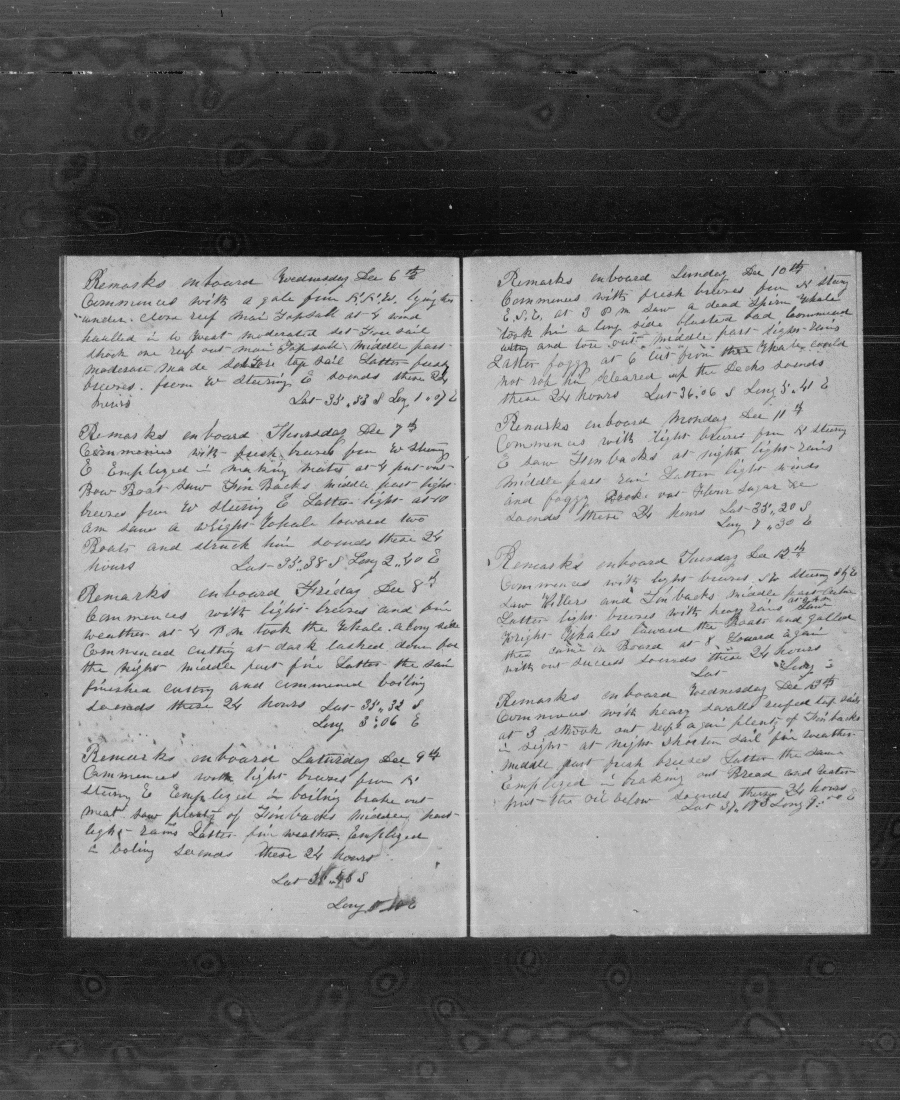 Remarks onboard Wednesday Dec 6th
Commences with a gale from N.N.W. lying too
under close reef Main Topsail at 4 wind
haulled in to West moderated set Fore sail
shook one reef out main Top sail middle part
moderate made sail Fore top sail Latter fresh
breeses from W stering E soends these 24
hours Lat 35.33 S Long 1.07 E
Remarks onboard Thursday Dec 7th
Commences with fresh breeses from W stering
E Employed in making mats at 4 put out
Bow Boat saw Finbacks middle part light
breeses from W stering E Latter light at 10
am saw a wright Whale lowered two
Boats and struck him soends these 24
hours Lat 35.38 S Long 2.40 E
Remarks onboard Friday Dec 8th
Commences with light breeses and fine
weather at 4 P m took the Whale along side
Commenced cutting at dark lacked down for
the night middle part fine Latter the same
finished cutting and commenced boiling
soends these 24 hours Lat 35.32 S
Long 3.06 E
Remarks onboard Saturday Dec 9th
Commences with light breeses from N
stering E Employed in boiling brake out
meat saw plenty of Finbacks middle part
light rains Latter fine weather Employed
in boling Soends these 24 hours
Lat 35.46 S
Long E
Remarks onboard Sunday Dec 10th
Commences with fresh breeses from N stering
E.S.E. at 3 P m Saw a dead Sperm Whale
took him a long side blasted bad Commenced
and tore out middle part light rains
Latter foggy at 6 cut from the Whale could
not him cleared up the Decks soends
these 24 hours Lat 36.06 S Long 5.41 E
Remarks onboard Monday Dec 11th
Commences with light breeses from N stering
E saw Finbacks at night light rains
middle part rain Latter light winds
and foggy Broke out Flour Sugar &c
Soends these 24 hours Lat 35.20 S
Long 7.30 E
Remarks onboard Tuesday Dec 12th
Commences with light breeses stering
Saw Killers and Finbacks middle part
Latter light breeses with heavy rains saw
Wright Whales lowerd the Boats and gallied
then came on Board at 8 Lowerd again
with out success soends these 24 hours
Lat Long
Remarks onboard Wednesday Dec 13th
Commences with heavy squalls reefed top sails
at 3 shook out reefs again plenty of Finbacks
in sight at night shorten sail fine weather
middle part fresh breeses Latter the same
Employed in braking out Bread and water
put the oil below soends these 24 hours
Lat 37.17 S Long 9.00 E